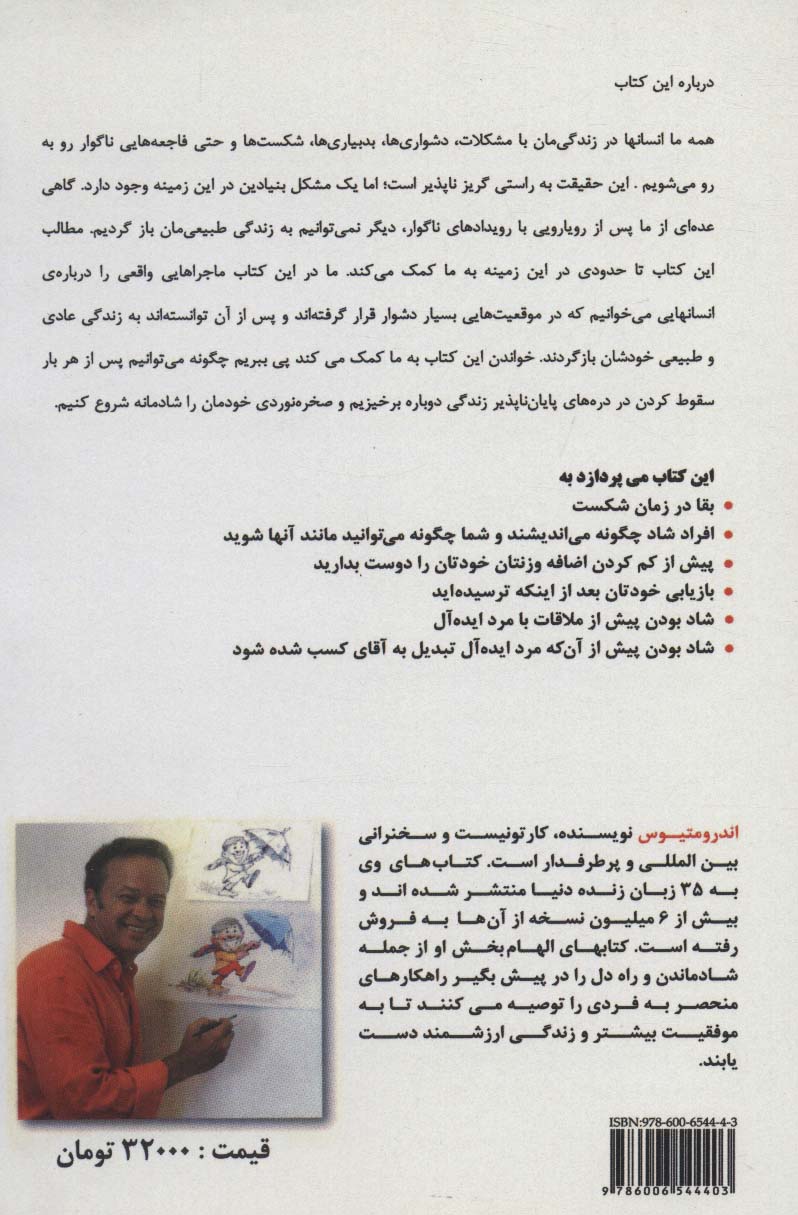 درباره این کتاب
همه ما انسانها در زندگی‌مان با مشکلات، دشواری‌ها، بدبیاری‌ها، شکست‌ها و حتی فاجعه‌هایی ناگوار رو به
رو می‌شویم . این حقیقت به راستی گریز ناپذیر است؛ اما یک مشکل بنیادین در این زمینه وجود دارد. گاهی
عده‌ای از ما پس از رویارویی با رویدادهای ناگوار، دیگر نمی‌توانیم به زندگی طبیعی‌مان باز گردیم. مطالب
این کتاب تا حدودی در این زمینه به ما کمک می‌کند. ما در این کتاب ماجراهایی واقعی را درباره‌ی
انسانهایی می‌خوانیم که در موقعیت‌هایی بسیار دشوار قرار گرفته‌اند و پس از آن توانسته‌اند به زندگی عادی
و طبیعی خودشان بازگردند. خواندن این کتاب به ما کمک می کند پی ببریم چگونه می‌توانیم پس از هر بار
سقوط کردن در دره‌های پایان‌ناپذیر زندگی دوباره برخیزیم و صخره‌نوردی خودمان را شادمانه شروع کنیم.
این کتاب می پردازد به
• بقا در زمان شکست
• افراد شاد چگونه می‌اندیشند و شما چگونه می‌توانید مانند آنها شوید
• پیش از کم کردن اضافه وزنتان خودتان را دوست بدارید
• بازیابی خودتان بعد از اینکه ترسیده‌اید
• شاد بودن پیش از ملاقات با مرد ایده‌آل
• شاد بودن پیش از آن‌که مرد ایده‌آل تبدیل به آقای کسب شده شود
اندرومتیوس نویسنده، کارتونیست و سخنرانی
بین المللی و پرطرفدار است. کتاب‌های وی
به ۳۵ زبان زنده دنیا منتشر شده اند و
بیش از ۶ میلیون نسخه از آن‌ها به فروش
رفته است. کتابهای الهام‌بخش او از جمله
شادماندن و راه دل را در پیش بگیر راهکارهای
منحصر به فردی را توصیه می کنند تا به
موفقیت بیشتر و زندگی ارزشمند دست
یابند.
ISBN:978-600-6544-4-3
9 786006 544403
قیمت : ۳۲۰۰۰ تومان